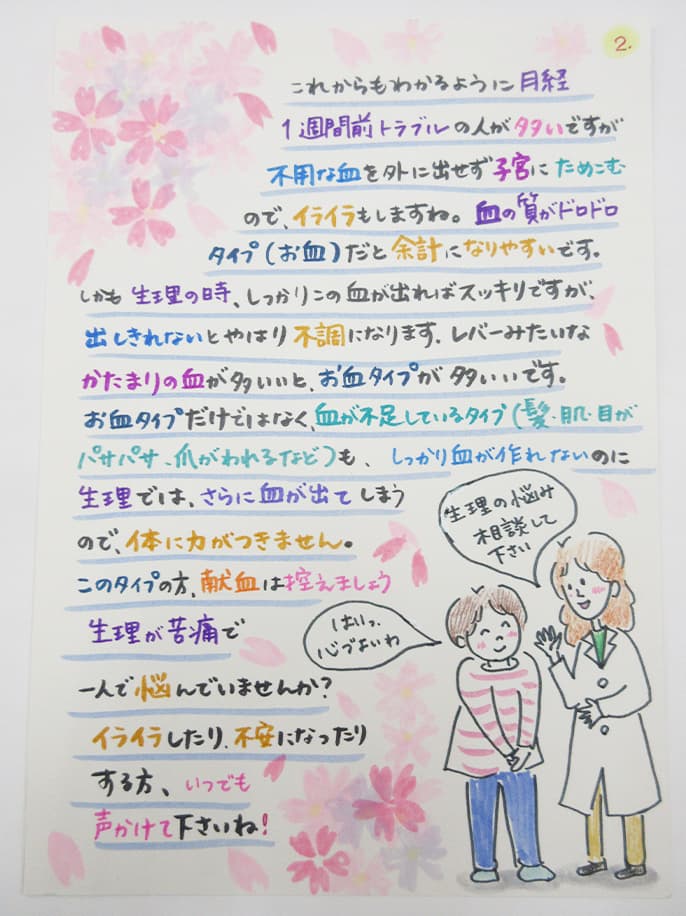 2.
これからもわかるように月経
1週間前トラブルの人が多いですが
不用な血を外に出せず子宮にためこむ
ので、イライラもしますね。血の質がドロドロ
タイプ(お血)だと余計になりやすいです。
しかも生理の時、しっかりこの血が出ればスッキリですが、
出しきれないとやはり不調になります。レバーみたいな
かたまりの血が多いいと、お血タイプが多いいです。
お血タイプだけではなく、血が不足しているタイプ(髪・肌・目が
パサパサ、爪がわれるなど)も、しっかり血が作れないのに
生理では、さらに血が出てしまう
ので、体に力がつきません。
このタイプの方、献血は控えましょう
生理が苦痛で
一人で悩んでいませんか?
イライラしたり、不安になったり
する方、いつでも
声かけて下さいね!
生理の悩み
相談して
下さい
はいっ、
心づよいわ